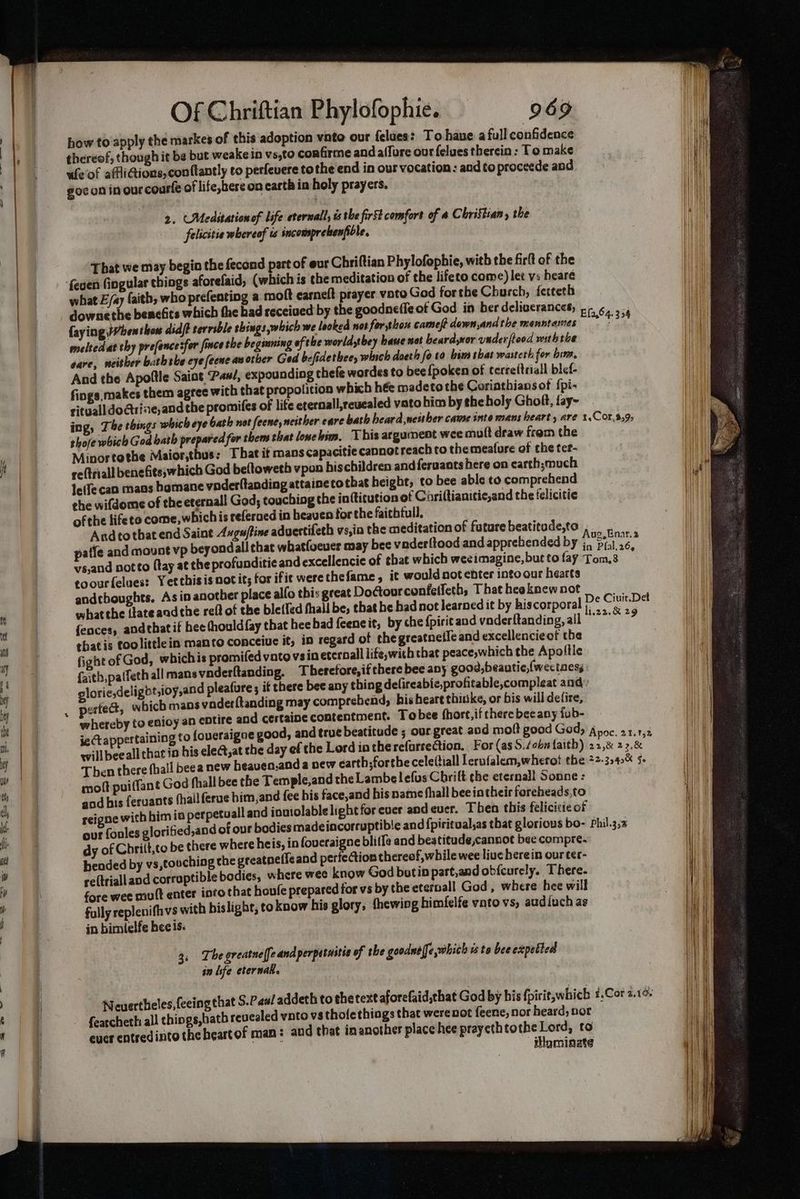 Of Chriſtian Phyloſophie. 969
how to apply the markes of this adoption vnto our ſelues: To haue a full confidence
thereof, though it be but weake in vs,to confirme and aſſure our ſelues therein: To make
vſe of afflictions,conſtantly to perſeuere to the end in our vocation: and to proceede and
goe on in our courſe of life,here on earth in holy prayers.
2. Meditation of life eternall, is the firſt comfort of a Chriſtian, the
felicitie whereof is incomprehenſible.
That we may begin the ſecond part of our Chriſtian Phyloſophie, with the firſt of the
ſeuen ſingular things aforeſaid, (which is the meditation of the life to come) let vs heare
what Eſay ſaith, who preſenting a moſt earneſt prayer vnto God for the Church, ſetteth
downe the benefits which ſhe had receiued by the goodneſſe of God in her deliuerances,
ſaying,When thou didſt terrible things,which we looked not for,thou cameſt down,and the mountaines Eſa.64.3,4
melted at thy preſence:for ſince the beginning of the world,they haue not heard,nor vnderſtood with the
eare, neither hath the eye ſeene another God beſide thee, which doeth ſo to him that waiteth for him.
And the Apoſtle Saint Paul, expounding theſe wordes to bee ſpoken of terreſtriall bleſ-
ſings,makes them agree with that propoſition which hée made to the Corinthians of ſpi-
rituall doctrine,and the promiſes of life eternall,reuealed vnto him by the holy Ghoſt, ſay-
ing, The things which eye hath not ſeene,neither eare hath heard,neither came into mans heart, are 1.Cor.2,9,
thoſe which God hath prepared for them that loue him. This argument wee muſt draw from the
Minor to the Maior,thus: That if mans capacitie cannot reach to the meaſure of the ter-
reſtriall benefits,which God beſtoweth vpon his children and ſeruants here on earth;much
leſſe can mans humane vnderſtanding attaine to that height, to bee able to comprehend
the wiſdome of the eternall God; touching the inſtitution of Chriſtianitie,and the felicitie
of the life to come, which is reſerued in heauen for the faithfull.
And to that end Saint Auguſtine aduertiſeth vs,in the meditation of future beatitude,to Aug.Enar.2
paſſe and mount vp beyond all that whatſoeuer may bee vnderſtood and apprehended by in Pſal.26,
vs,and not to ſtay at the profunditie and excellencie of that which wee imagine,but to ſay Tom.8
to our ſelues: Yet this is not it; for if it were the ſame, it would not enter into our hearts
and thoughts. As in another place alſo this great Doctour confeſſeth, That hee knew not
what the ſtate and the reſt of the bleſſed ſhall be, that he had not learned it by his corporal De Ciuit.Dei
ſences, and that if hee ſhould ſay that hee had ſeene it, by the ſpirit and vnderſtanding, all li.22.& 29
that is too little in man to conceiue it, in regard of the greatneſſe and excellencie of the
ſight of God, which is promiſed vnto vs in eternall life,with that peace,which the Apoſtle
ſaith,paſſeth all mans vnderſtanding. Therefore,if there bee any good,beautie,ſweetneſs,
glorie,delight,ioy,and pleaſure; if there bee any thing deſireable,profitable,compleat and
perfect, which mans vnderſtanding may comprehend, his heart thinke, or his will deſire,
whereby to enioy an entire and certaine contentment. To bee ſhort,if there bee any ſub-
iect appertaining to ſoueraigne good, and true beatitude; our great and moſt good God,
will bee all that in his elect,at the day of the Lord in the reſurrection. For (as S.Iohn ſaith) Apoc. 21.1,2
Then there ſhall bee a new heauen,and a new earth,for the celeſtiall Ieruſalem,wherof the 22,& 23.&
moſt puiſſant God ſhall bee the Temple,and the Lambe Ieſus Chriſt the eternall Sonne: 22.3,4,& 5.
and his ſeruants ſhall ſerue him,and ſee his face,and his name ſhall bee in their foreheads,to
reigne with him in perpetuall and inuiolable light for euer and euer. Then this felicitie of
our ſoules glorified,and of our bodies made incorruptible and ſpiritual,as that glorious bo-
dy of Chriſt,to be there where he is, in ſoueraigne bliſſe and beatitude,cannot bee compre- Phil.3,2
hended by vs,touching the greatneſſe and perfection thereof,while wee liue herein our ter-
reſtriall and corruptible bodies, where wee know God but in part,and obſcurely. There-
fore wee muſt enter into that houſe prepared for vs by the eternall God, where hee will
fully repleniſh vs with his light, to know his glory, ſhewing himſelfe vnto vs, and ſuch as
in himſelfe hee is.
3. The greatneſſe and perpetuitie of the goodneſſe,which is to bee expected
in life eternall.
Neuertheles,ſeeing that S.Paul addeth to the text aforeſaid,that God by his ſpirit,which 1.Cor 2.10.
ſearcheth all things,hath reuealed vnto vs thoſe things that were not ſeene, nor heard, nor
euer entred into the heart of man: and that in another place hee prayeth to the Lord, to
illuminate